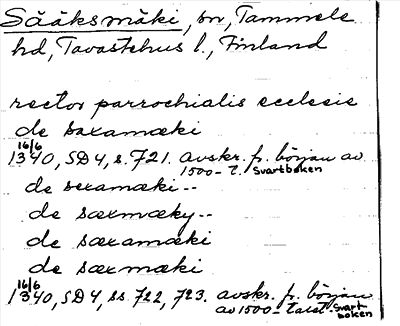 Sääksmäki, sn, Tammela
hd, Tavastehus l., Finland
rector parrochialis ecclesie
de saxamæki
16/6
1340, SD4, s. 721. avskr. fr. början av
1500-t. Svartboken
de sexamæki--
de sæxmæky--
de sæxamæki
de sæxmæki
16/6
1340, SD4, ss. 722, 723. avskr. fr. början
av 1500-talet. Svart-
boken